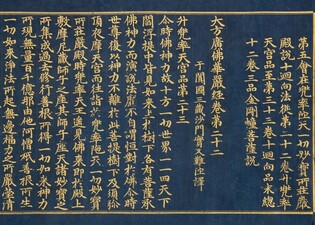 第五會在兜率陀天一切妙寶所莊嚴
殿說十迴向法從第二十二卷升兜率
天宮品至第三十三卷十迴向品末總
十二卷三品金剛幢菩薩說
大方廣佛華嚴經卷第二十二
于闐國三藏沙門實叉難陀譯
升兜率天宮品第二十三
今時佛神力故十方一切世界一一四天下
閻浮提中皆見如來坐於樹下各有菩薩承
佛神力而演說法靡不自謂恒對於佛爾時
世尊復以神力不離於此菩提樹下及須彌
頂夜摩天宮而往詣於兜率陀天一切妙寶
所莊嚴殿時兜率天王遙見佛來即於殿上
敷摩尼藏師子之座其師子座天諸妙寶之
所集成過去修行善根所得一切如來神力
所現無量百千億那由他阿僧祇善根所生
一切如來淨法所起無邊福力之所嚴瑩清